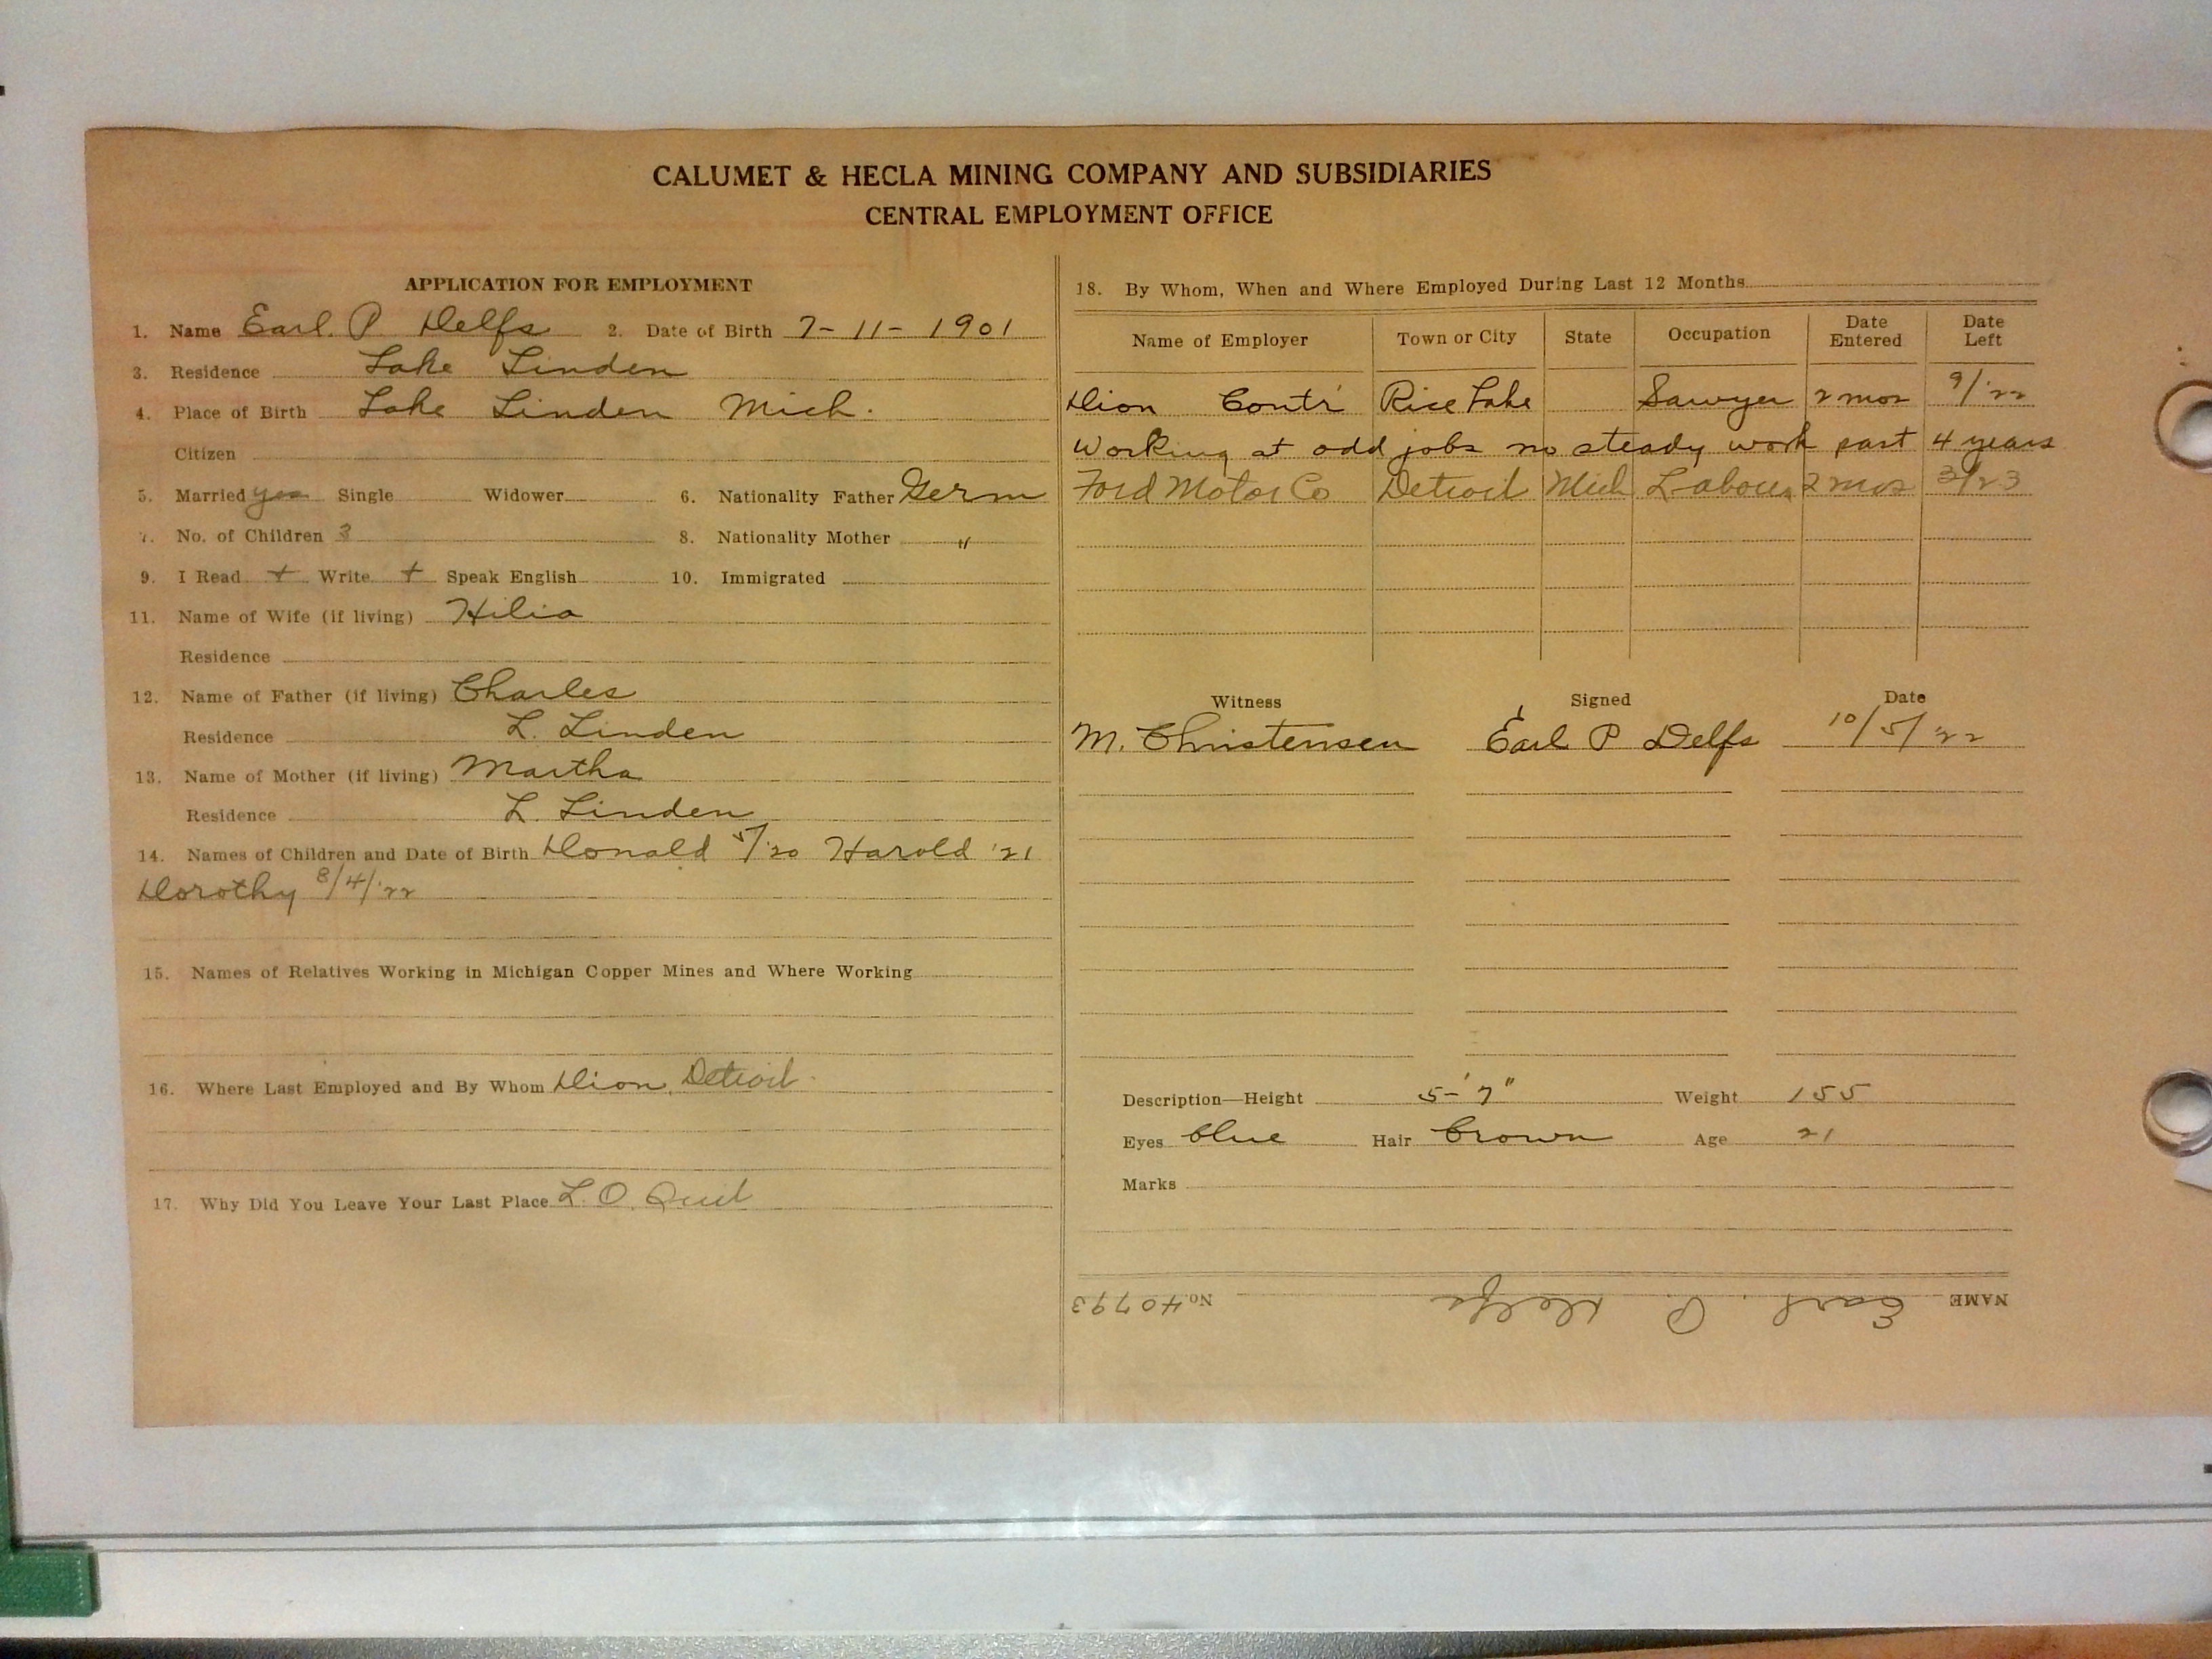 CALUMET & HECLA MINING COMPANY AND SUBSIDIARIES
CENTRAL EMPLOYMENT OFFICE
APPLICATION FOR EMPLOYMENT
1. Name Earl. P Delfs 2. Date of Birth 7-11-1901
3. Residence Lake Linden
4. Place of Birth Lake Linden Mich.
Citizen
5. Married yes Single Widower 6. Nationality Father Germ
7. No. of Children 3 8. Nationality Mother "
9. I Read + Write + Speak English 10. Immigrated
11. Name of Wife (if living) Hilia
Residence
12. Name of Father (if living) Charles
Residence L. Linden
13. Name of Mother (if living) Martha
Residence L. Linden
14. Names of Children and Date of Birth Donald 5/20 Harold '21
Dorothy 8/4/'22
15. Names of Relatives Working in Michigan Copper Mines and Where Working
16. Where Last Employed and By Whom Dion, Detroit.
17. Why Did You Leave Your Last Place L. O. Quit
18. By Whom, When and Where Employed During Last 12 Months
Name of Employer Town or City State Occupation Date Entered Date Left
Dion Contr Rice Lake Sawyer 2 mos 9/'22
Working at odd jobs no steady work past 4 years
Ford Motor Co Detroit Mich Labour 2 mos 3/23
Witness Signed Date
M. Christensen Earl P Delfs 10/5/22
Description—Height 5-'7" Weight 155
Eyes blue Hair brown Age 21
Marks
NAME Earl. P. Delfs No. 40793